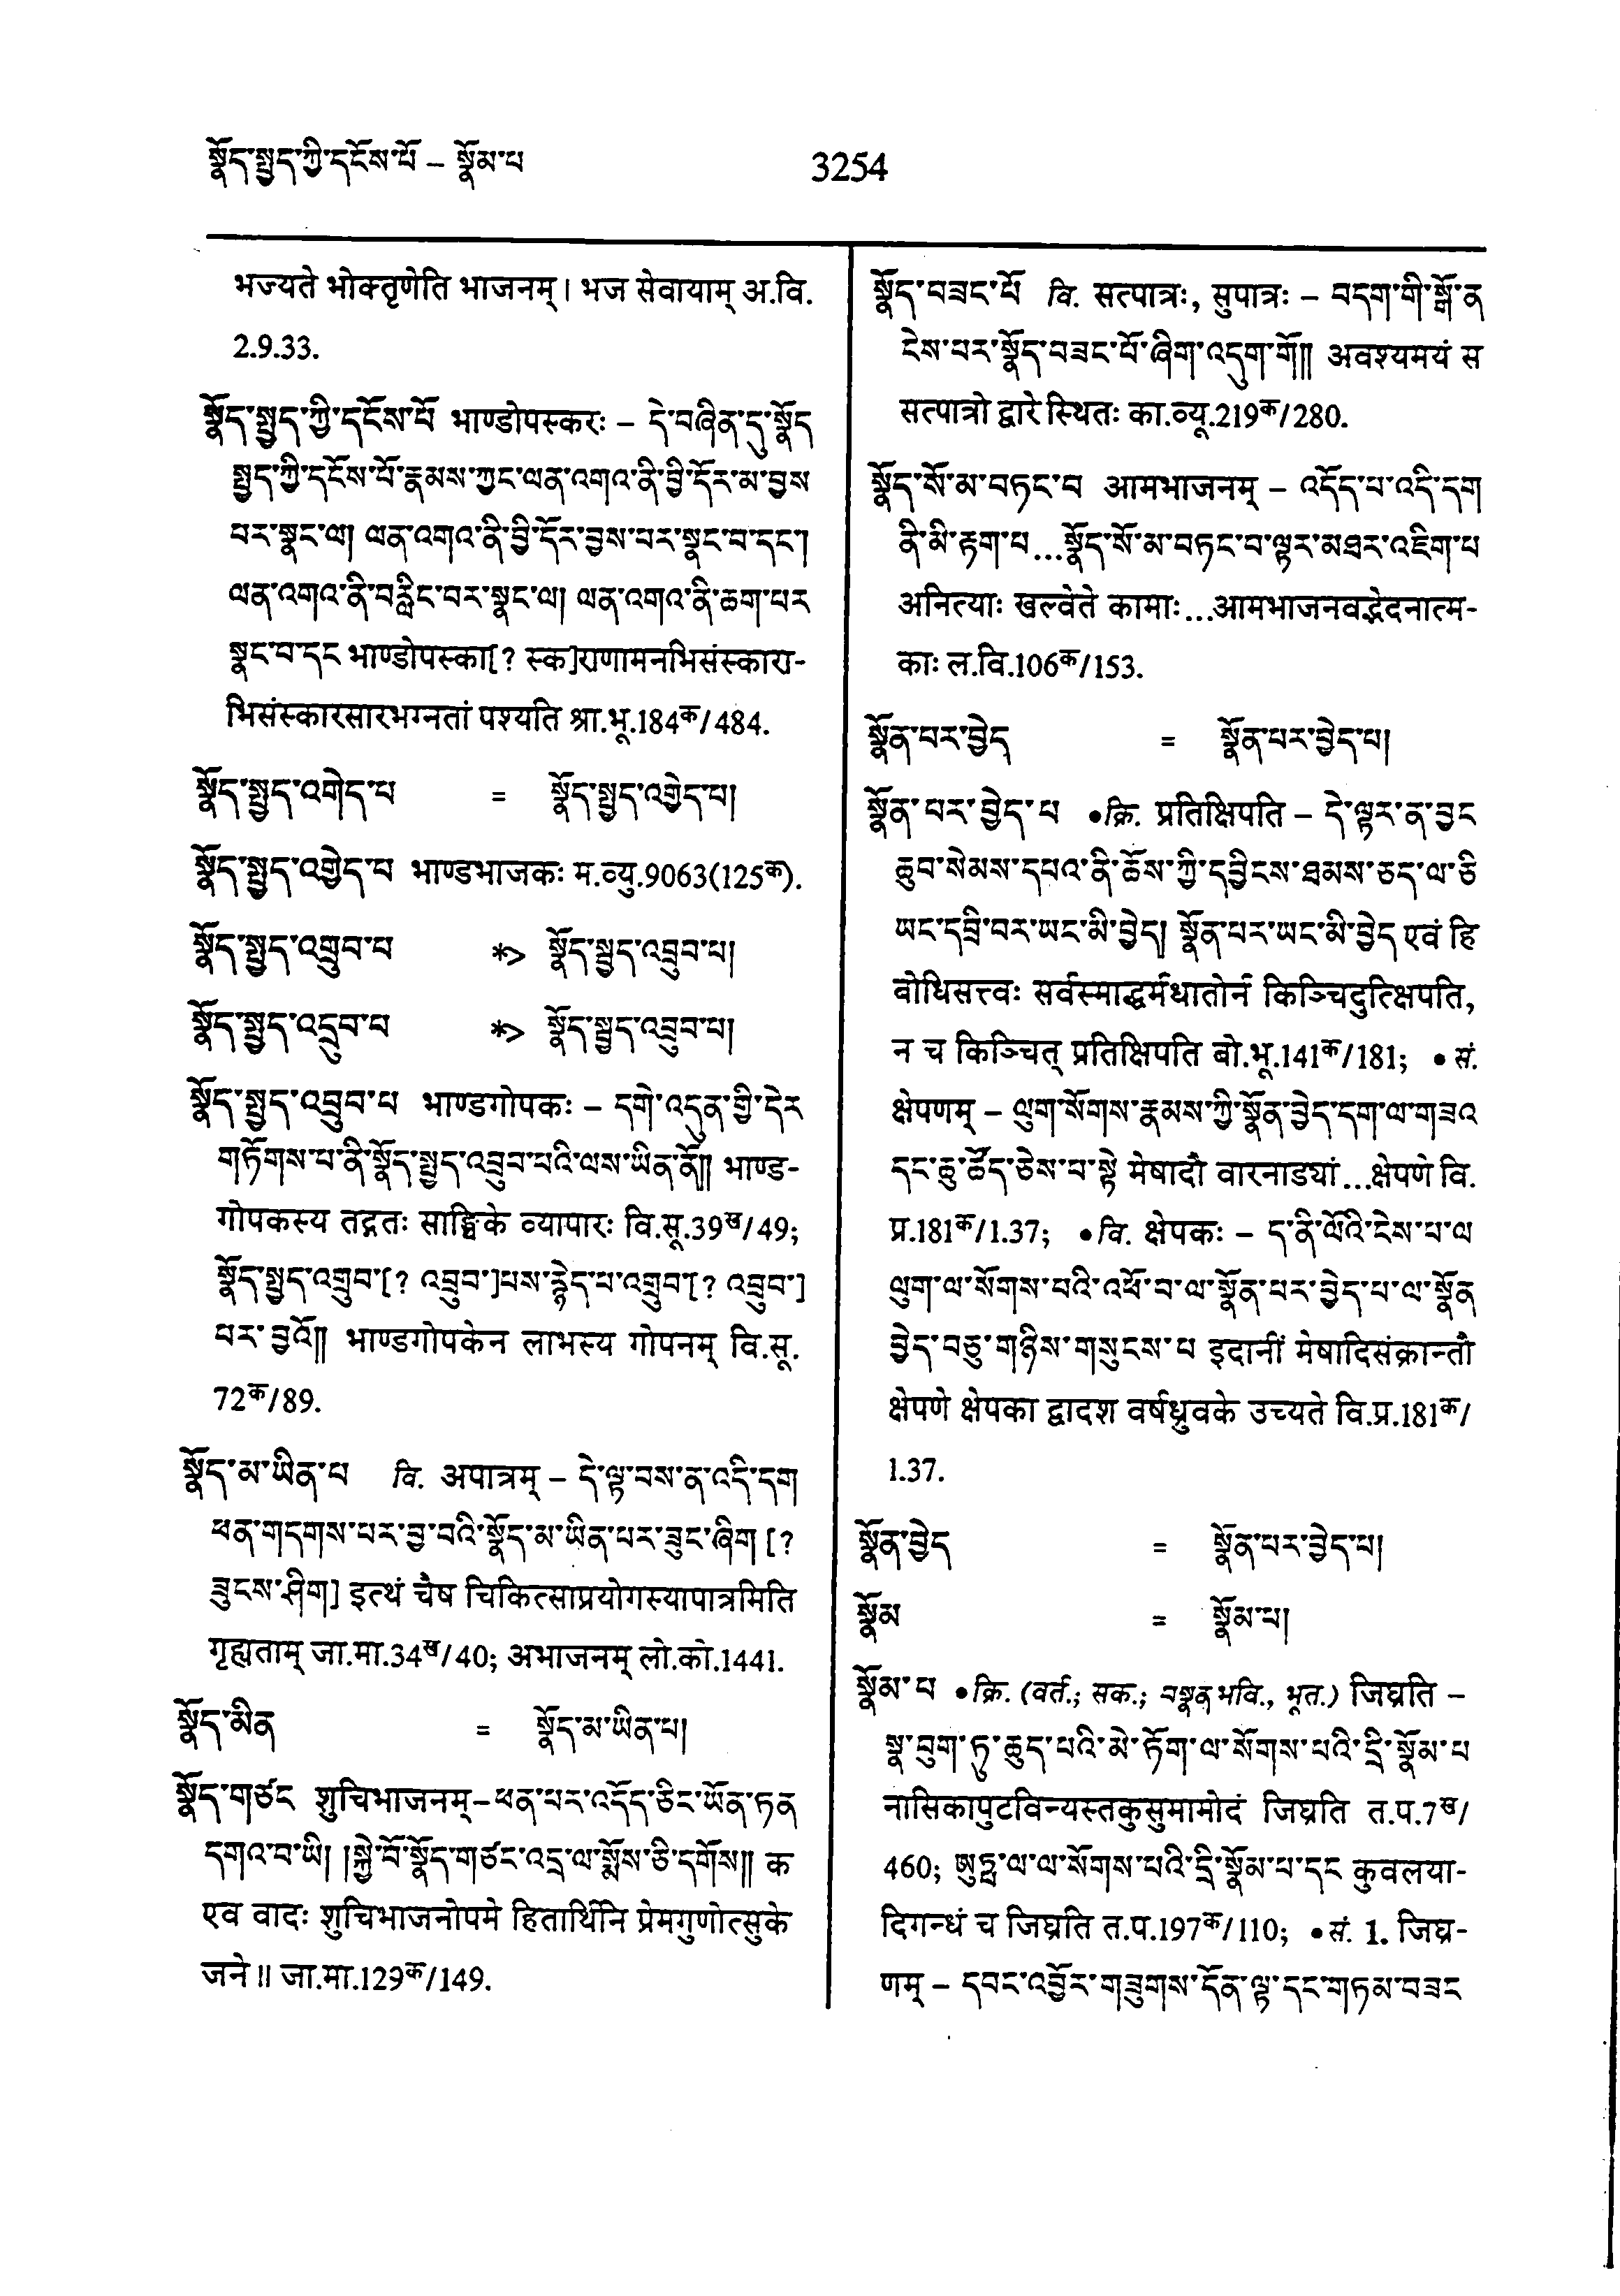 སྣོད་སྤྱད་ཀྱི་དངོས་པོ – སྣོམ་པ 3254
भज्यते भोक्तृणेति भाजनम्। भज सेवायाम् अ.वि.
2.9.33.
སྣོད་སྤྱད་ཀྱི་དངོས་པོ भाण्डोपस्करः – དེ་བཞིན་དུ་སྣོད
སྤྱད་ཀྱི་དངོས་པོ་རྣམས་ཀྱང་ལན་འགའ་ནི་བྱི་དོར་མ་བྱས
པར་སྣང་ལ། ལན་འགའ་ནི་བྱི་དོར་བྱས་པར་སྣང་བ་དང་།
ལན་འགའ་ནི་བརླིང་བར་སྣང་ལ། ལན་འགའ་ནི་ཆག་པར
སྣང་བ་དང भाण्डोपस्का[? स्क]राणामनभिसंस्कारा-
भिसंस्कारसारभग्नतां पश्यति श्रा.भू.184क/484.
སྣོད་སྤྱད་འགེད་པ = སྣོད་སྤྱད་འགྱེད་པ།
སྣོད་སྤྱད་འགྱེད་པ भाण्डभाजकः म.व्यु.9063(125क).
སྣོད་སྤྱད་འགྲུབ་པ *> སྣོད་སྤྱད་འབྲུབ་པ།
སྣོད་སྤྱད་འདྲུབ་པ *> སྣོད་སྤྱད་འབྲུབ་པ།
སྣོད་སྤྱད་འབྲུབ་པ भाण्डगोपकः – དགེ་འདུན་གྱི་དེར
གཏོགས་པ་ནི་སྣོད་སྤྱད་འབྲུབ་པའི་ལས་ཡིན་ནོ།། भाण्ड-
गोपकस्य तद्गतः साङ्घिके व्यापारः वि.सू.39ख/49;
སྣོད་སྤྱད་འགྲུབ་[? འབྲུབ་]པས་རྙེད་པ་འགྲུབ་[? འབྲུབ་]
པར་བྱའོ།། भाण्डगोपकेन लाभस्य गोपनम् वि.सू.
72क/89.
སྣོད་མ་ཡིན་པ वि. अपात्रम् – དེ་ལྟ་བས་ན་འདི་དག
ཕན་གདགས་པར་བྱ་བའི་སྣོད་མ་ཡིན་པར་ཟུང་ཞིག [?
ཟུངས་ཤིག] इत्थं चैष चिकित्साप्रयोगस्यापात्रमिति
गृह्यताम् जा.मा.34ख/40; अभाजनम् लो.को.1441.
སྣོད་མིན = སྣོད་མ་ཡིན་པ།
སྣོད་གཙང शुचिभाजनम्–ཕན་པར་འདོད་ཅིང་ཡོན་ཏན
དགའ་བ་ཡི། །སྐྱེ་བོ་སྣོད་གཙང་འདྲ་ལ་སྨོས་ཅི་དགོས།། क
एव वादः शुचिभाजनोपमे हितार्थिनि प्रेमगुणोत्सुके
जने॥ जा.मा.129क/149.
སྣོད་བཟང་པོ वि. सत्पात्रः, सुपात्रः – བདག་གི་སྒོ་ན
ངེས་པར་སྣོད་བཟང་པོ་ཞིག་འདུག་གོ།། अवश्यमयं स
सत्पात्रो द्वारे स्थितः का.व्यू.219क/280.
སྣོད་སོ་མ་བཏང་བ आमभाजनम् – འདོད་པ་འདི་དག
ནི་མི་རྟག་པ...སྣོད་སོ་མ་བཏང་བ་ལྟར་མཐར་འཇིག་པ
अनित्याः खल्वेते कामाः...आमभाजनवद्भेदनात्म-
काः ल.वि.106क/153.
སྣོན་པར་བྱེད = སྣོན་པར་བྱེད་པ།
སྣོན་པར་བྱེད་པ •क्रि. प्रतिक्षिपति – དེ་ལྟར་ན་བྱང
ཆུབ་སེམས་དཔའ་ནི་ཆོས་ཀྱི་དབྱིངས་ཐམས་ཅད་ལ་ཅི
ཡང་དབྲི་བར་ཡང་མི་བྱེད། སྣོན་པར་ཡང་མི་བྱེད एवं हि
बोधिसत्त्वः सर्वस्माद्धर्मधातोर्न किञ्चिदुत्क्षिपति,
न च किञ्चित् प्रतिक्षिपति बो.भू.141क/181; • सं.
क्षेपणम् – ལུག་སོགས་རྣམས་ཀྱི་སྣོན་བྱེད་དག་ལ་གཟའ
དང་ཆུ་ཚོད་ཅེས་པ་སྟེ मेषादौ वारनाड्यां...क्षेपणे वि.
प्र.181क/1.37; •वि. क्षेपकः – ད་ནི་ལོའི་ངེས་པ་ལ
ལུག་ལ་སོགས་པའི་འཕོ་བ་ལ་སྣོན་པར་བྱེད་པ་ལ་སྣོན
བྱེད་བཅུ་གཉིས་གསུངས་པ इदानीं मेषादिसंक्रान्तौ
क्षेपणे क्षेपका द्वादश वर्षध्रुवके उच्यते वि.प्र.181क/
1.37.
སྣོན་བྱེད = སྣོན་པར་བྱེད་པ།
སྣོམ = སྣོམ་པ།
སྣོམ་པ •क्रि. (वर्त.; सक.; བསྣན भवि., भूत.) जिघ्रति –
སྣ་བུག་ཏུ་ཆུད་པའི་མེ་ཏོག་ལ་སོགས་པའི་དྲི་སྣོམ་པ
नासिकापुटविन्यस्तकुसुमामोदं जिघ्रति त.प.7ख/
460; ཨུཏྤ་ལ་ལ་སོགས་པའི་དྲི་སྣོམ་པ་དང कुवलया-
दिगन्धं च जिघ्रति त.प.197क/110; •सं. 1. जिघ्र-
णम् – དབང་འབྱོར་གཟུགས་དོན་ལྟ་དང་གཏམ་བཟང